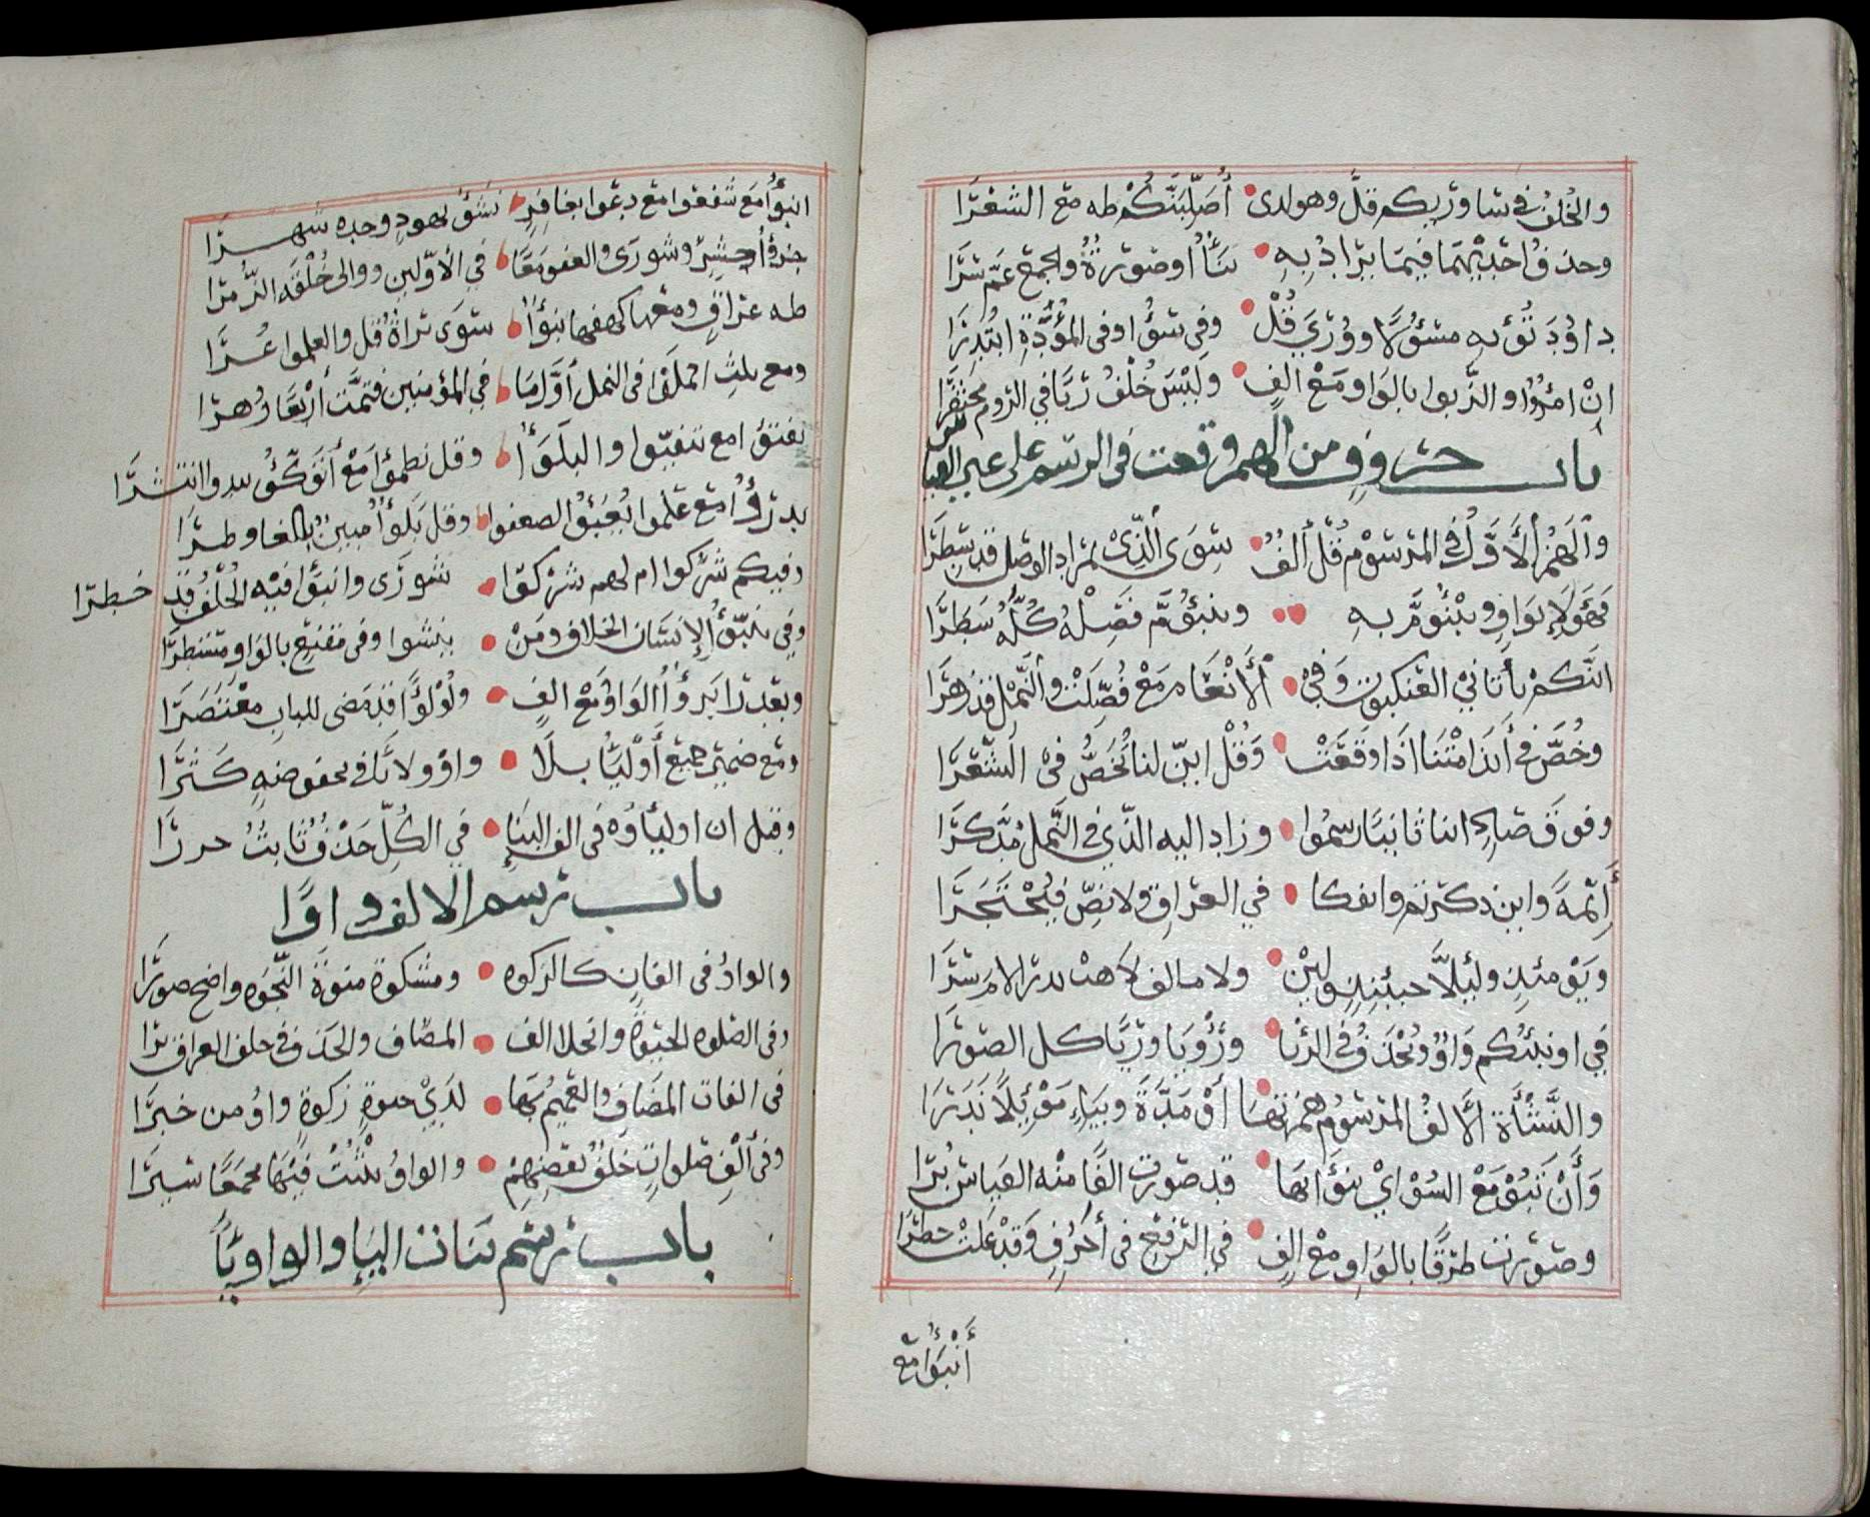 والخلف في ساوريكم قل وهو لدى أصلبنكم طه مع الشعرا
وحذف احديهما فيما يزاد به بناأ او صورة والجمع عم سرا
داود تؤيه مسؤلا وورى قل وفي سؤا وفي المؤدة ابتدرا
ان امرؤا والربوا بالواو مع الف وليس خلف ربا في الروم محتقرا
باب حروف من الهمز وقعت في الرسم على غير القياس
والهمز الاول في المرسوم قل ألف سوى الذي بمراد الوصل قد سطرا
فهؤلاء بواو ويبنؤم به ويبنؤم فصله كله سطرا
ائنكم ياتاني العنكبوت وفي الانعام مع فصلت والنمل قد زهرا
وخص في أئذا متنا اذا وقعت وقل ائن لنا تخص في الشعرا
وفوق صاد ائنا ثانيا رسموا وزاد اليه الذي في النمل مدكرا
أئمة وائن ذكرتم وائفكا في العراق ولا نص فيحتجرا
ويومئذ ولئلا حينئذ ولئن ولام الف لاهب بدر الامام سرا
في اونبئكم واو ويحذف في الرئيا ورؤيا وريا كل الصورا
والنشأة الالف المرسوم همزتها أو مدة وبياء موئلا ندرا
وأن تبوا مع السواى تنوأ بها قد صورت الفا منه القياس برا
وصورت طرفا بالواو مع الف في الرفع في أحرف وقد علت خطرا
أنبؤا مع
انبؤا مع شفعوا مع دعوا بغافر نشؤا بهود وحده شهرا
جزؤا حشر وشورى والعقود معا في الاولين ووالى خلفه الزمرا
طه عراق ومعها كهفها نبؤا سوى براة قل والعلموا عرا
ومع ثلث الملا في النمل أول ما في المؤمنين فتمت أربعا زهرا
تفتؤا مع تتفيوا والبلؤا وقل تظمؤا مع أتوكؤ يبدوا انتشرا
يدرؤا مع علموا يعبؤا الضعفوا وقل بلؤا مبين بالغا وطرا
وفيكم شركوا ام لهم شركوا شورى وانبؤا فيه الخلف قد خطرا
وفي ينبؤا الانسان الخلاف ومن ينشوا وفي مقنع بالواو مستطرا
وبعد را برؤا الواو مع الف ولؤلؤا قد مضى للباب معتصرا
ومع ضمير جميع أوليا بلا واو ولا يا في مخفوضه كثرا
وقيل ان اولياؤه في الف البناء في الكل حذف ثابت حررا
باب رسم الالف واوا
والواو في الفات كالزكوه ومشكوة منوة النجوه واضح صورا
وفي الصلوه الحيوة وانجلا الف المضاف والحذف في خلف العراق يرا
في الفات المضاف والعميم بها لدى حيوة زكوة واو من خبرا
وفي ألف صلوات خلف بعضهم والواو تثبت فيها مجمعا سيرا
باب رسم بنات الياء والواو ياء